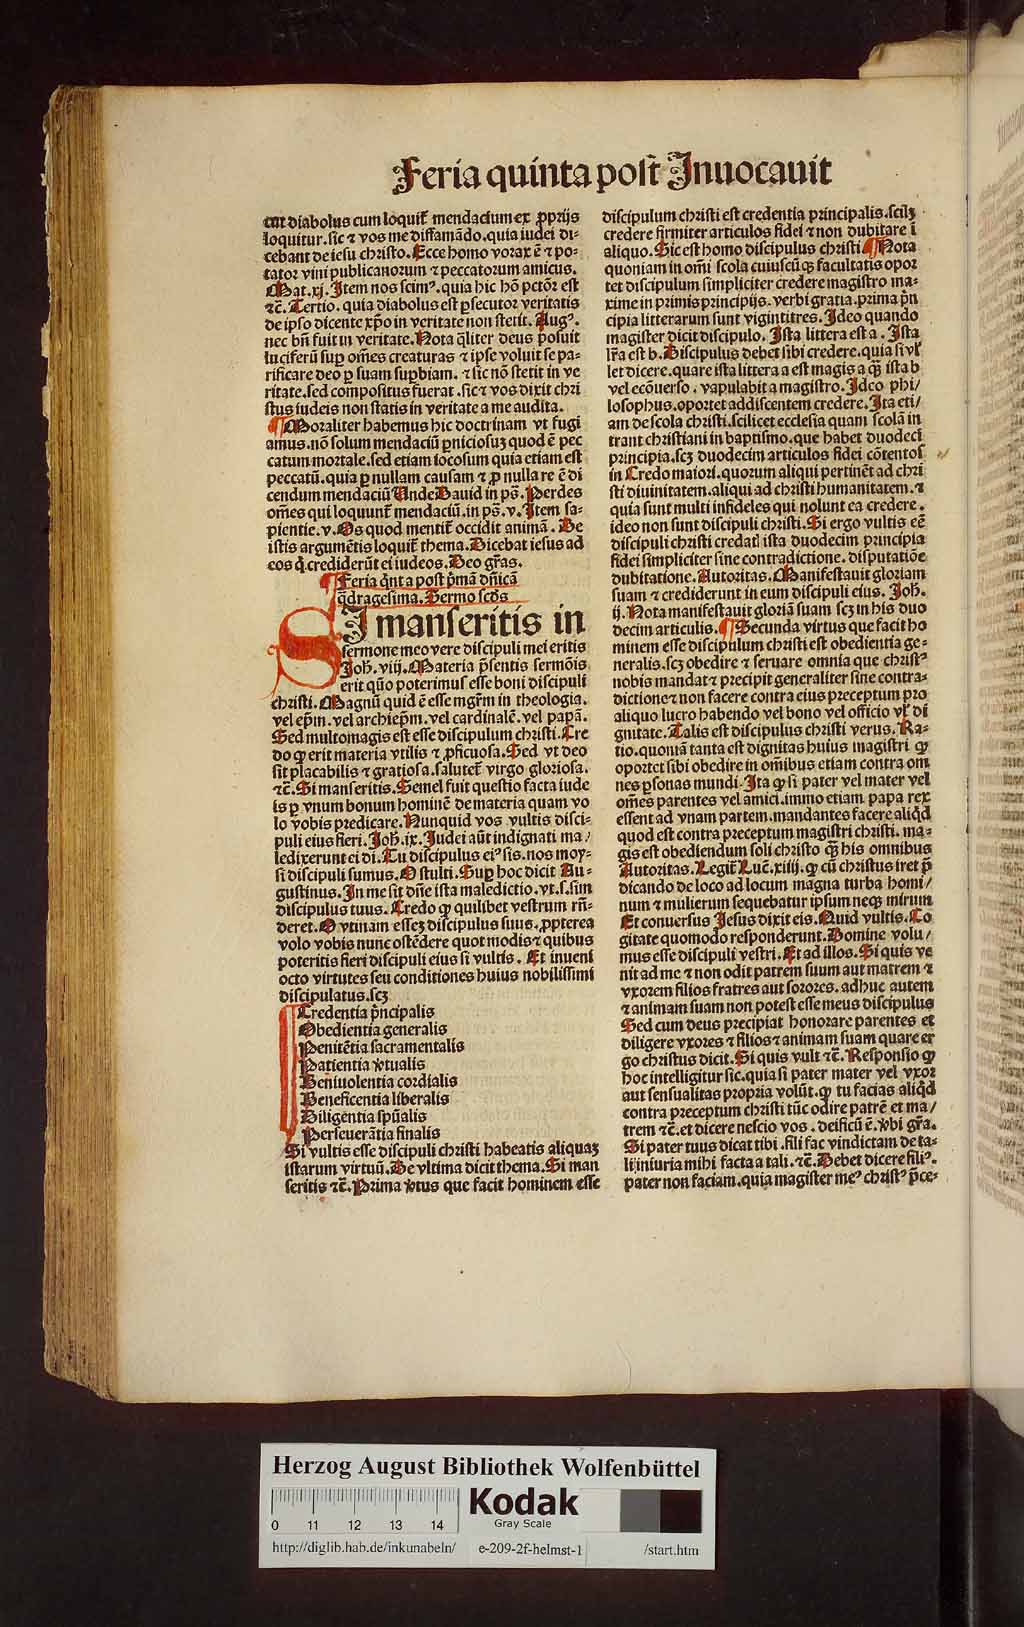 Feria quinta post Inuocauit
cut diabolus cum loquit̃ mendacium ex ꝓprijs
loquitur. sic ⁊ vos me diffamãdo. quia iudei di-
cebant de iesu christo. Ecce homo vorax ẽ ⁊ po-
tator vini publicanorum ⁊ peccatorum amicus.
Mat. xj. Item nos scimꝰ. quia hic hõ pctõr est
⁊c̃. Tertio. quia diabolus est ꝑsecutor veritatis
de ipso dicente xp̃o in veritate non stetit. Augꝰ.
nec bñ fuit in veritate. Nota q̃liter deus ꝓposuit
luciferũ suꝑ om̃es creaturas ⁊ ipse voluit se pa-
rificare deo ꝑ suam suꝑbiam. ⁊ sic nõ stetit in ve
ritate. sed compositus fuerat. sic ⁊ vos dixit chri
stus iudeis non statis in veritate a me audita.
¶ Moraliter habemus hic doctrinam vt fugi
amus. nõ solum mendaciũ ꝑniciosuꝫ quod ẽ pec
catum mortale. sed etiam iocosum quia etiam est
peccatũ. quia ꝑ nullam causam ⁊ ꝓ nulla re ẽ di
cendum mendaciũ Unde Dauid in ps̃. Perdes
om̃es qui loquunt̃ mendaciũ. in ps̃. v. Item sa-
pientie. v. Os quod mentit̃ occidit animã. De
istis argumẽtis loquit̃ thema. Dicebat iesus ad
eos q̃ crediderũt ei iudeos. Deo gr̃as.
¶ Feria q̃nta post pr̃mã dñicã
q̃dragesima. Sermo scd̃s
SI manseritis in
sermone meo vere discipuli mei eritis
Joh̃. viij. Materia p̃sentis sermõis
erit quõ poterimus esse boni discipuli
christi. Magnũ quid ẽ esse mgr̃m in theologia.
vel ep̃m. vel archiep̃m. vel cardinalẽ. vel papã.
Sed multomagis est esse discipulum christi. Cre
do ꝙ erit materia vtilis ⁊ ꝓficuosa. Sed vt deo
sit placabilis ⁊ gratiosa. salutet̃ virgo gloriosa.
⁊c̃. Si manseritis. Semel fuit questio facta iude
is ꝑ vnum bonum hominẽ de materia quam vo
lo vobis predicare. Nunquid vos vultis disci-
puli eius fieri. Joh̃. ix. Judei aũt indignati ma/
ledixerunt ei di. Tu discipulus eiꝰ sis. nos moy-
si discipuli sumus. O stulti. Suꝑ hoc dicit Au-
gustinus. In me sit dñe ista maledictio. vt. s. sim
discipulus tuus. Credo ꝙ quilibet vestrum rñ-
deret. O vtinam esseꝫ discipulus suus. ꝓpterea
volo vobis nunc ostẽdere quot modis ⁊ quibus
poteritis fieri discipuli eius si vultis. Et inueni
octo virtutes seu conditiones huius nobilissimi
discipulatus. scꝫ
Credentia p̃ncipalis
Obedientia generalis
Penitẽtia sacramentalis
Patientia v̾tualis
Beniuolentia cordialis
Beneficentia liberalis
Diligentia sp̃ualis
Perseuerãtia finalis
Si vultis esse discipuli christi habeatis aliquaꝫ
istarum virtuũ. De vltima dicit thema. Si man
seritis ⁊c̃. Prima v̾tus que facit hominem esse
discipulum christi est credentia principalis. scilꝫ
credere firmiter articulos fidei ⁊ non dubitare ĩ
aliquo. Sic est homo discipulus christi ¶ Nota
quoniam in om̃i scola cuiuscũqꝫ facultatis opor
tet discipulum simpliciter credere magistro ma-
xime in primis principijs. verbi gratia. prima p̃n
cipia litterarum sunt vigintitres. Ideo quando
magister dicit discipulo. Ista littera est a. Ista
lr̃a est b. Discipulus debet sibi credere. quia si vl̾
let dicere. quare ista littera a est magis a q̃ꝫ ista b
vel ecõuerso. vapulabit a magistro. Ideo phi/
losophus. oportet addiscentem credere. Ita eti/
am de scola christi. scilicet ecclesia quam scolã in
trant christiani in baptismo. que habet duodeci
principia. scꝫ duodecim articulos fidei cõtentos
in Credo maiori. quorum aliqui pertinẽt ad chri
sti diuinitatem. aliqui ad christi humanitatem. ⁊
quia sunt multi infideles qui nolunt ea credere.
ideo non sunt discipuli christi. Si ergo vultis eẽ
discipuli christi credatl̾ ista duodecim principia
fidei simpliciter sine contradictione. disputatiõe
dubitatione. Autoritas. Manifestauit gloriam
suam ⁊ crediderunt in eum discipuli eius. Joh̃.
ij. Nota manifestauit gloriã suam scꝫ in his duo
decim articulis. ¶ Secunda virtus que facit ho
minem esse discipulum christi est obedientia ge-
neralis. scꝫ obedire ⁊ seruare omnia que christꝰ
nobis mandat ⁊ precipit generaliter sine contra-
dictione ⁊ non facere contra eius preceptum pro
aliquo lucro habendo vel bono vel officio vl̾ di
gnitate. Talis est discipulus christi verus. Ra-
tio. quoniã tanta est dignitas huius magistri ꝙ
oportet sibi obedire in om̃ibus etiam contra om
nes ꝑsonas mundi. Ita ꝙ si pater vel mater vel
om̃es parentes vel amici. immo etiam papa rex
essent ad vnam partem. mandantes facere aliq̃d
quod est contra preceptum magistri christi. ma-
gis est obediendum soli christo q̃ꝫ his omnibus
Autoritas. Legit̃ Luc̃. xiiij. ꝙ cũ christus iret p̃
dicando de loco ad locum magna turba homi/
num ⁊ mulierum sequebatur ipsum neqꝫ mirum
Et conuersus Jesus dixit eis. Quid vultis. Co
gitate quomodo responderunt. Domine volu/
mus esse discipuli vestri. Et ad illos. Si quis ve
nit ad me ⁊ non odit patrem suum aut matrem ⁊
vxorem filios fratres aut sorores. adhuc autem
⁊ animam suam non potest esse meus discipulus
Sed cum deus precipiat honorare parentes et
diligere vxores ⁊ filios ⁊ animam suam quare er
go christus dicit. Si quis vult ⁊c̃. Responsio ꝙ
hoc intelligitur sic. quia si pater mater vel vxor
aut sensualitas propria volũt. ꝙ tu facias aliq̃d
contra preceptum christi tũc odire patrẽ et ma/
trem ⁊c̃. et dicere nescio vos. deificũ ẽ. v̾bi gr̃a.
Si pater tuus dicat tibi. fili fac vindictam de ta-
li iniuria mihi facta a tali. ⁊c̃. Debet dicere filiꝰ.
pater non faciam. quia magister meꝰ christꝰ p̃ce-
Herzog August Bibliothek Wolfenbüttel
0 11 12 13 14
Kodak
Gray Scale
http://diglib.hab.de/inkunabeln/ e-209-2f-helmst-1 /start.htm